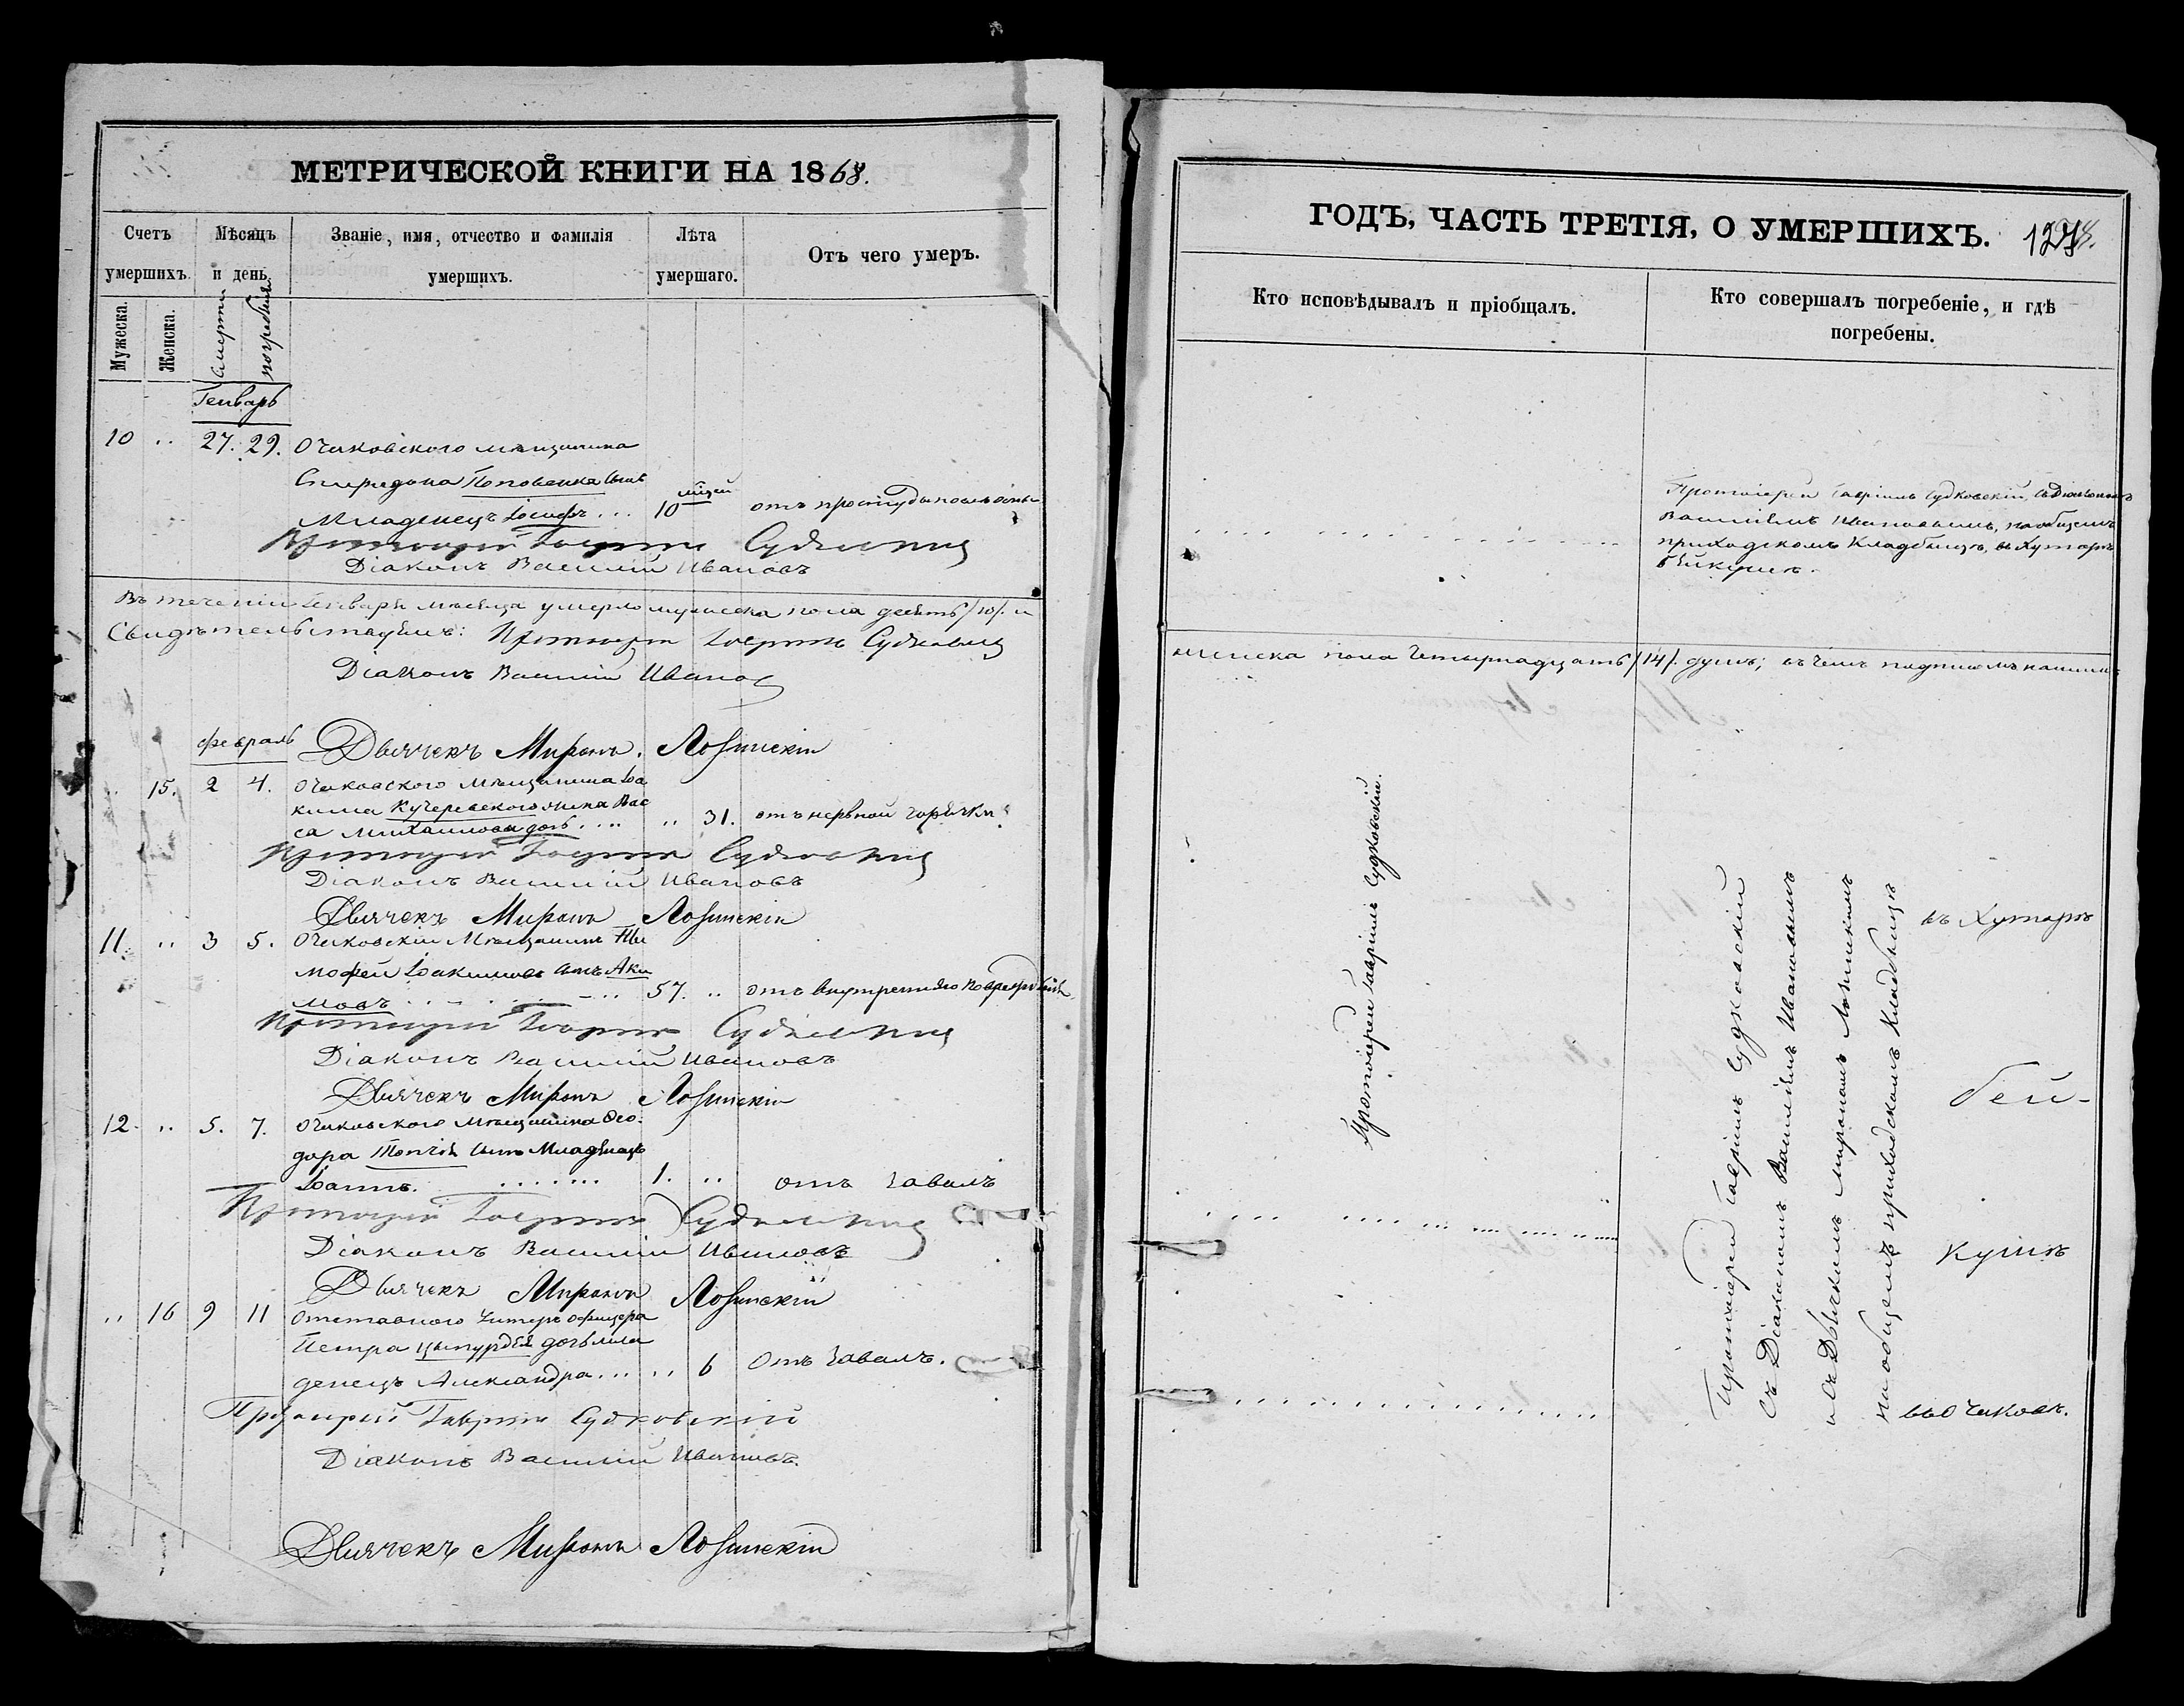 МЕТРИЧЕСКОЙ КНИГИ НА 1868.
Счетъ умершихъ.
Мужеска.
Женска.
Мѣсяцъ и день.
смерти
погребенія
Званіе, имя, отчество и фамилія умершихъ.
Лѣта умершаго.
Отъ чего умеръ.
Генварь
10 .. 27. 29. Очаковского мѣщанина
Спиридона Поповенка сынъ
Младенецъ Іосифъ ... 10 отъ простуды
Протоіерей Гавріилъ Судковскій
Діаконъ Василій Ивановъ
Въ теченіи Генваря мѣсяца умерло мужеска пола десять /10/. и
Свидѣтельствуемъ: Протоіерей Гавріилъ Судковскій
Діаконъ Василій Ивановъ
Февраль
Дьячекъ Миронъ Лозинскій
15. 2 4. Очаковского мѣщанина Іоа
кима Кучеревского жена Вас
са Михаилова дочь .... .. 31. отъ нервной горячки
Протоіерей Гавріилъ Судковскій
Діаконъ Василій Ивановъ
Дьячекъ Миронъ Лозинскій
11. .. 3 5. Очаковскій Мѣщанинъ Ти
мофей Іоакимовъ сынъ Аки
мовъ ... 57. .. отъ внутренняго
Протоіерей Гавріилъ Судковскій
Діаконъ Василій Ивановъ
Дьячекъ Миронъ Лозинскій
12. .. 5. 7. Очаковского Мѣщанина Ѳео-
дора сынъ Младенецъ
Іоаннъ. ....... 1. .. отъ
Протоіерей Гавріилъ Судковскій
Діаконъ Василій Ивановъ
Дьячекъ Миронъ Лозинскій
.. 16 9 11 Отставного Унтеръ офицера
Петра дочь мла
денецъ Александра ... .. 6 отъ
Протоіерей Гавріилъ Судковскій
Діаконъ Василій Ивановъ.
Дьячекъ Миронъ Лозинскій
ГОДЪ, ЧАСТЬ ТРЕТІЯ, О УМЕРШИХЪ.
Кто исповѣдывалъ и пріобщалъ.
Кто совершалъ погребеніе, и гдѣ погребены.
Протоіерей Гавріилъ Судковскій, съ Діакономъ
Василіемъ Ивановымъ, на общемъ
приходскомъ Кладбищѣ, въ Хуторѣ
Бейкушѣ.
женска пола Четырнадцать /14/. душъ; въ чемъ подписомъ нашимъ
Протоіерей Гавріилъ Судковскій.
Протоіерей Гавріилъ Судковскій
съ Діакономъ Василіемъ Ивановымъ
и съ Дьячкомъ Мирономъ Лозинскимъ
на общемъ приходскомъ Кладбищѣ
въ Хуторѣ
Бей-
кушѣ
въ Очаковѣ.